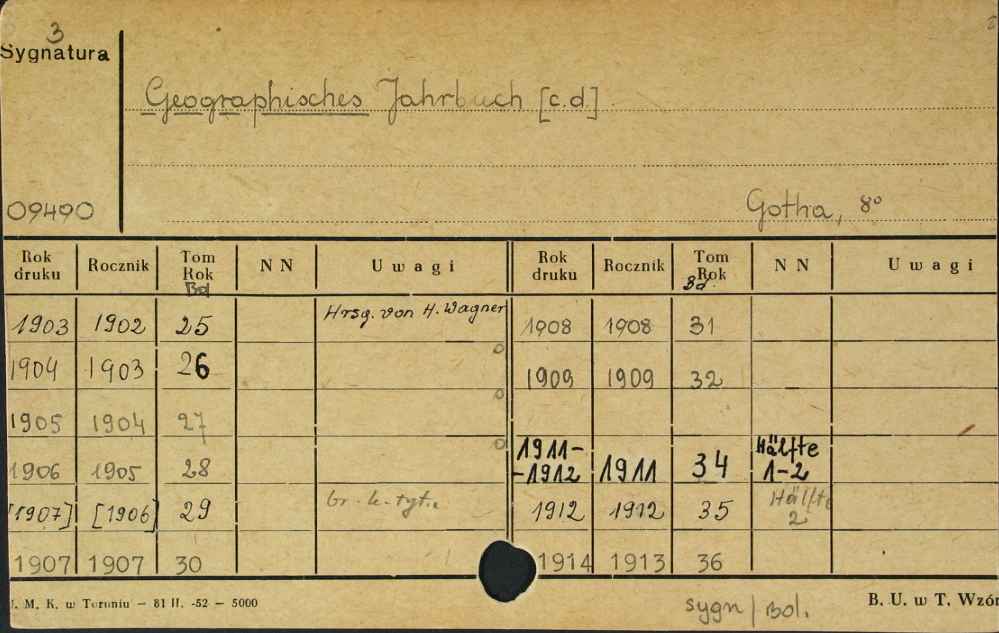 3
Sygnatura
Geographisches Jahrbuch [c.d.]
09490
Gotha, 8°
Rok druku Rocznik Tom Rok Bd NN Uwagi Rok druku Rocznik Tom Rok Bd. NN Uwagi
1903 1902 25 Hrsg. von H. Wagner 1908 1908 31
1904 1903 26 1909 1909 32
1905 1904 27
1906 1905 28 1911--1912 1911 34 Hälfte 1-2
[1907] [1906] 29 br. k. tyt. 1912 1912 35 Hälfte 2
1907 1907 30 1914 1913 36
U. M. K. w Toruniu — 81 II. -52 — 5000
sygn/Bol.
B. U. w T. Wzór